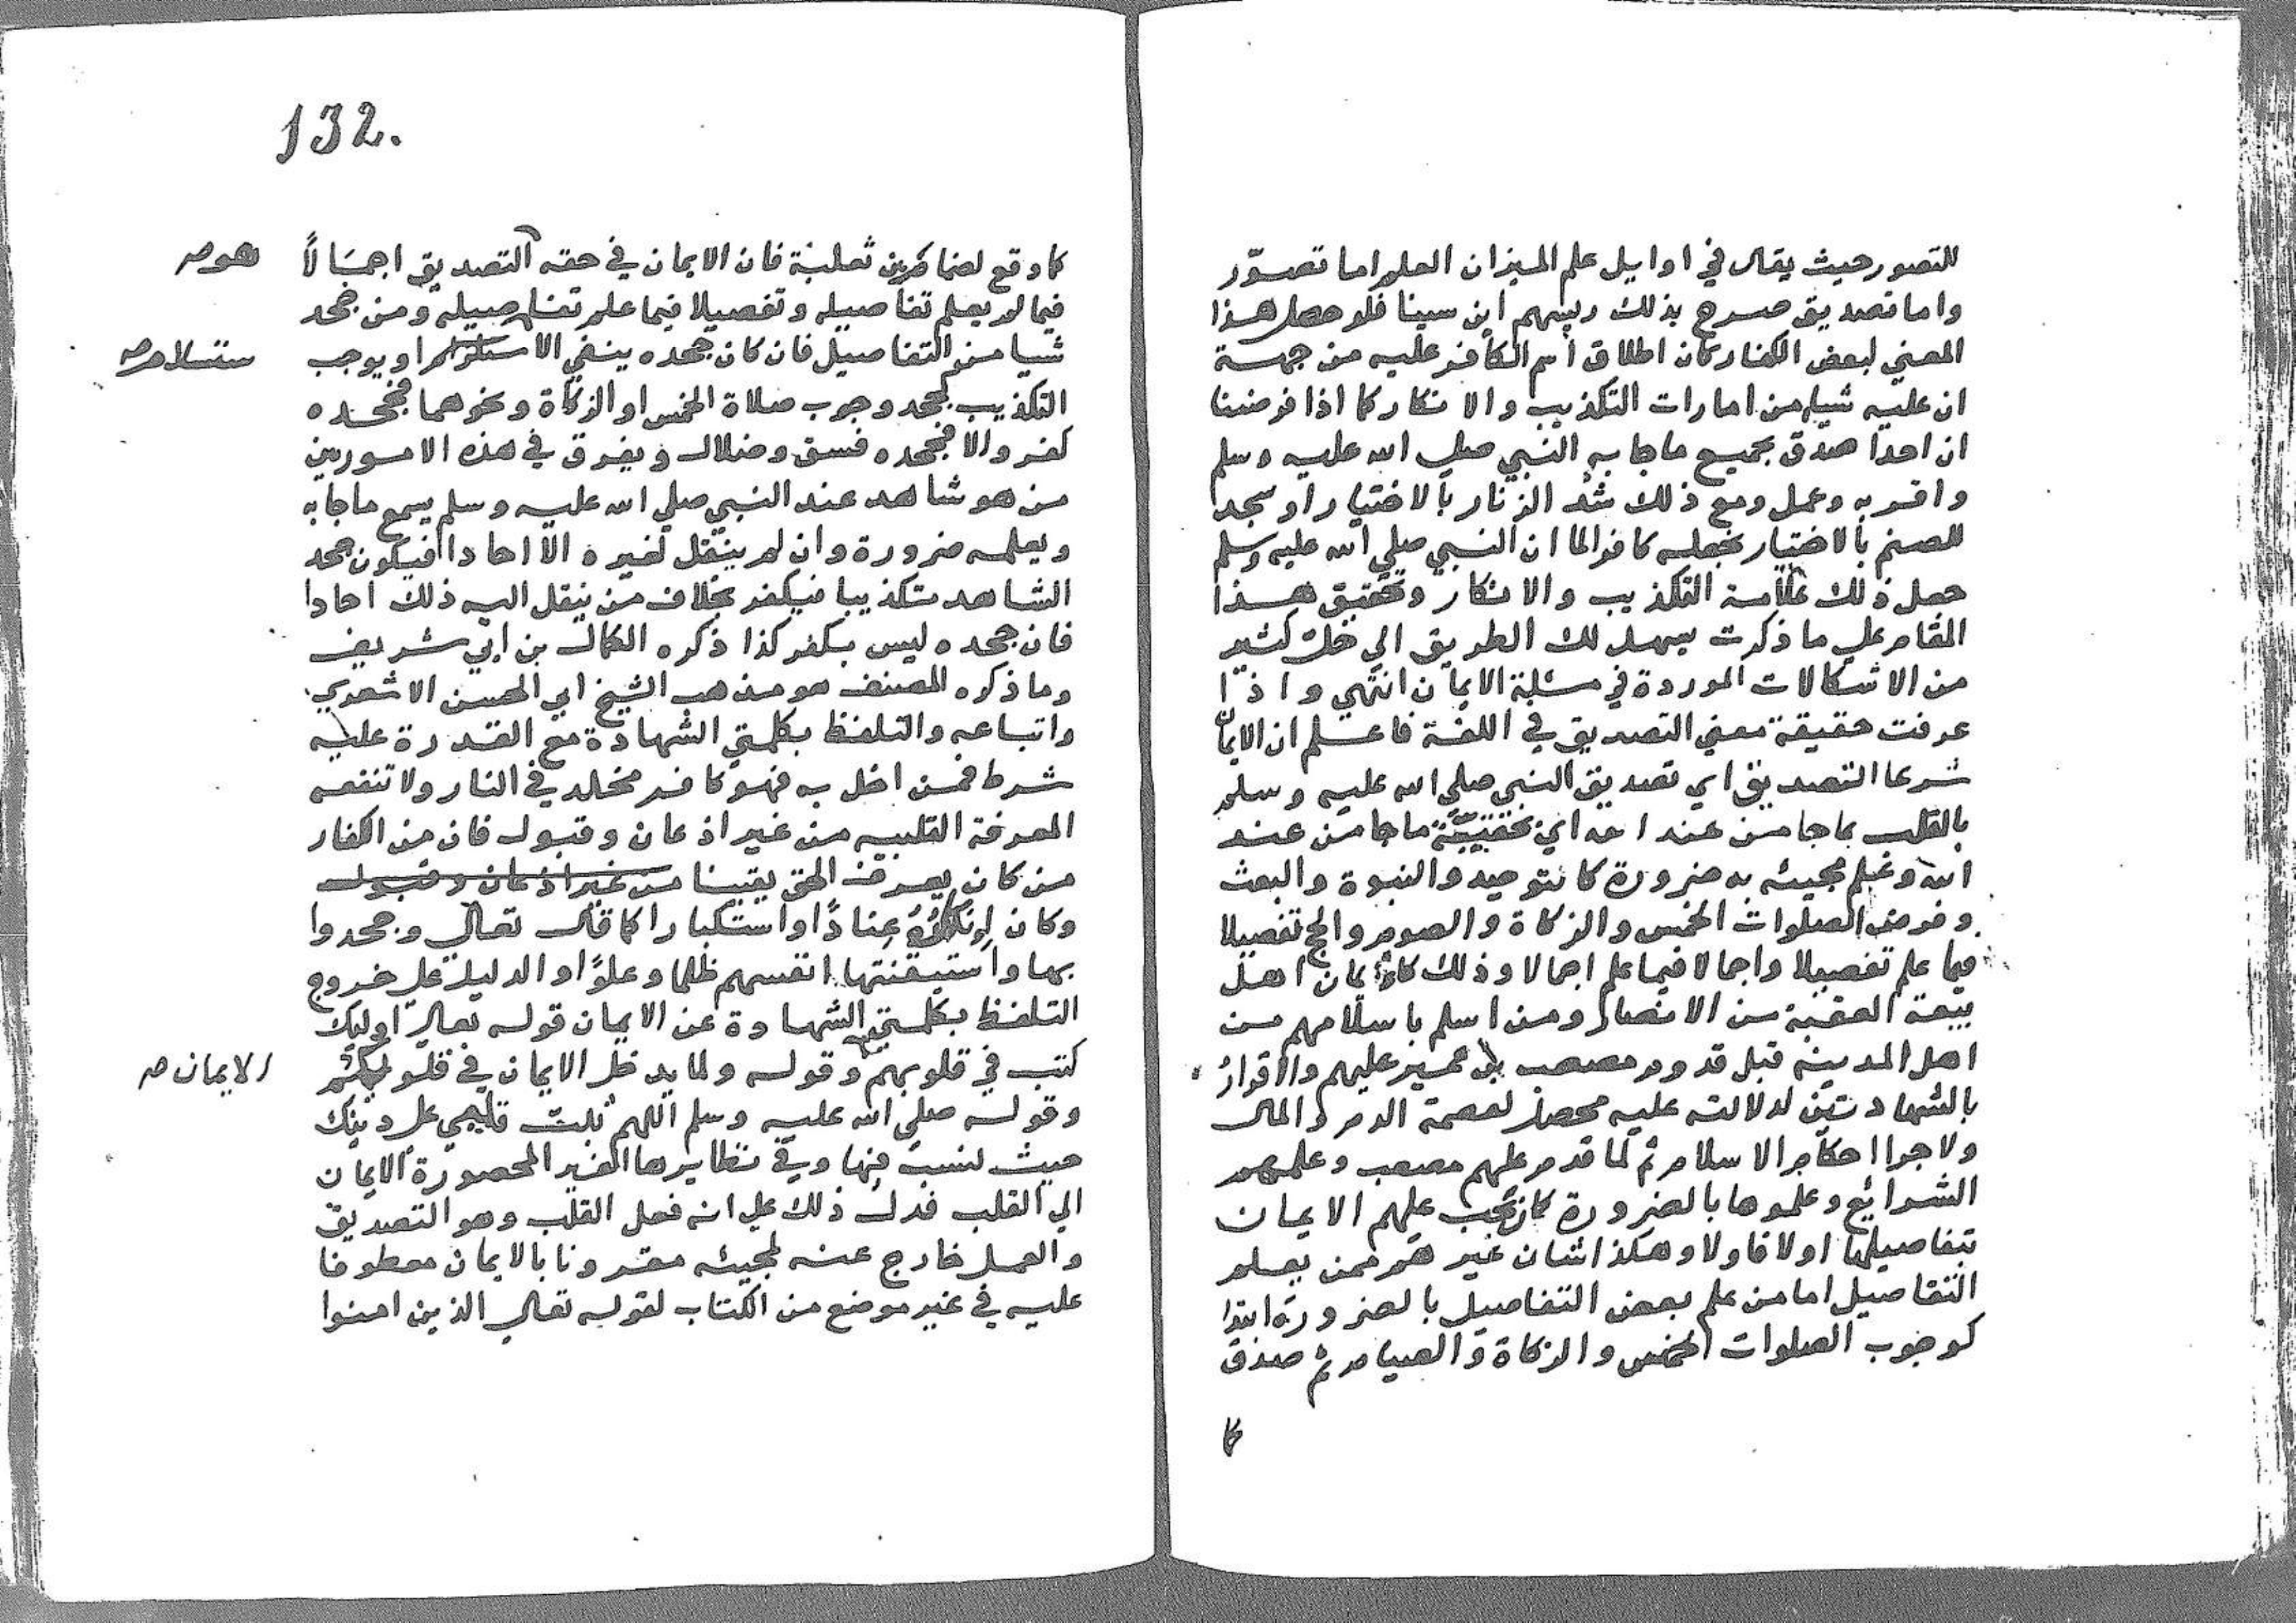 للتصور حيث يقال في اوايل علم الميزان العلم اما تصوّر
واما تصديق صرح بذلك رييسهم ابن سينا فلو حصل هذا
المعني لبعض الكفار كان اطلاق اسم الكافر عليه من جهة
ان عليه شيا من امارات التكذيب والانكار كما اذا فرضنا
ان احدا صدق بجميع ماجا به النبي صلي الله عليه وسلم
واقر به وعمل ومع ذلك شد الزنار بالاختيار او سجد
للصنم بالاختيار نجعله كافرا لما ان النبي صلي الله عليه وسلم
جعل ذلك علامة التكذيب والانكار وتحقيق هذا
المقام علي ما ذكرت يسهل لك الطريق الي حل كثير
من الاشكالات الموردة في مسئلة الايمان انتهي واذا
عرفت حقيقة معني التصديق في اللغة فاعلم ان الايمان
شرعا التصديق اي تصديق النبي صلي الله عليه وسلم
بالقلب بما جا من عند الله اي بحقيّة ما جا من عند
الله وعلم مجيئه به ضرورة كالتوحيد والنبوة والبعث
وفرض الصلوات الخمس والزكاة والصوم والحج تفصيلا
فيما علم تفصيلا واجمالا فيما علم اجمالا وذلك كايمان اهل
بيعة العقبة من الانصار ومن اسلم باسلامهم من
اهل المدينه قبل قدوم مصعب بن عمير عليهم والاقرار
بالشهادتين لدلالته عليه محصل لعصمة الدم والمال
ولاجرا احكام الاسلام ثم لما قدم عليهم مصعب وعلمهم
الشرائع وعلموها بالضرورة كان يجب عليهم الايمان
بتفاصيلها اولا فاولا وهكذا شان غيرهم ممن يعلم
التفاصيل اما من علم بعض التفاصيل بالضرورة ابتدا
كوجوب الصلوات الخمس والزكاة والصيام ثم صدق
كما
132.
كما وقع لضمام بن ثعلبة فان الايمان في حقه التصديق اجمَالاً
هو صح
فيما لم يعلم تفاصيله وتفصيلا فيما علم تفاصيله ومن جحد
شيا من التفاصيل فان كان جحده ينفي الاستلزام او يوجب
ستسلام صح
التكذيب كجحد وجوب صلاة الخمس او الزكاة ونحوهما فجحده
كفر والا فجحده فسق وضلال ويفرق في هذه الامور بين
من هو شاهد عند النبي صلي الله عليه وسلم يسمع ماجا به
ويعلمه ضرورة وان لم ينقل لغيره الا احادا فيكون جحد
الشاهد تكذيبا فيكفر بخلاف من ينقل اليه ذلك احادا
فان جحده ليس بكفر كذا ذكره الكمال بن ابي شريف
وما ذكره المصنف هو مذهب الشيخ ابي الحسن الاشعري
واتباعه والتلفظ بكلمتي الشهادة مع القدرة عليه
شرط فمن اخل به فهو كافر مخلد في النار ولا تنفعه
المعرفة القلبيه من غير اذعان وقبول فان من الكفار
من كان يعرف الحق يقينا من غير اذعان وقبول
وكان إنكارُهُ عِناداً او استكبارا كما قال تعالي وجحدوا
بها واستيقنتها انفسهم ظلما وعلوّا والدليل علي خروج
التلفظ بكلمتي الشهادة عن الايمان قوله تعالي اوليك
كتب في قلوبهم وقوله ولما يدخل الايمان في قلوبكم
الايمان صح
وقوله صلي الله عليه وسلم اللهم ثبت قلبي علي دينك
حيث نسب فيها وفي نظايرها الغير المحصورة الايمان
الي القلب فدل ذلك علي انه فعل القلب وهو التصديق
والعمل خارج عنه لمجيئه مقرونا بالايمان معطوفا
عليه في غير موضع من الكتاب لقوله تعالي الذين امنوا